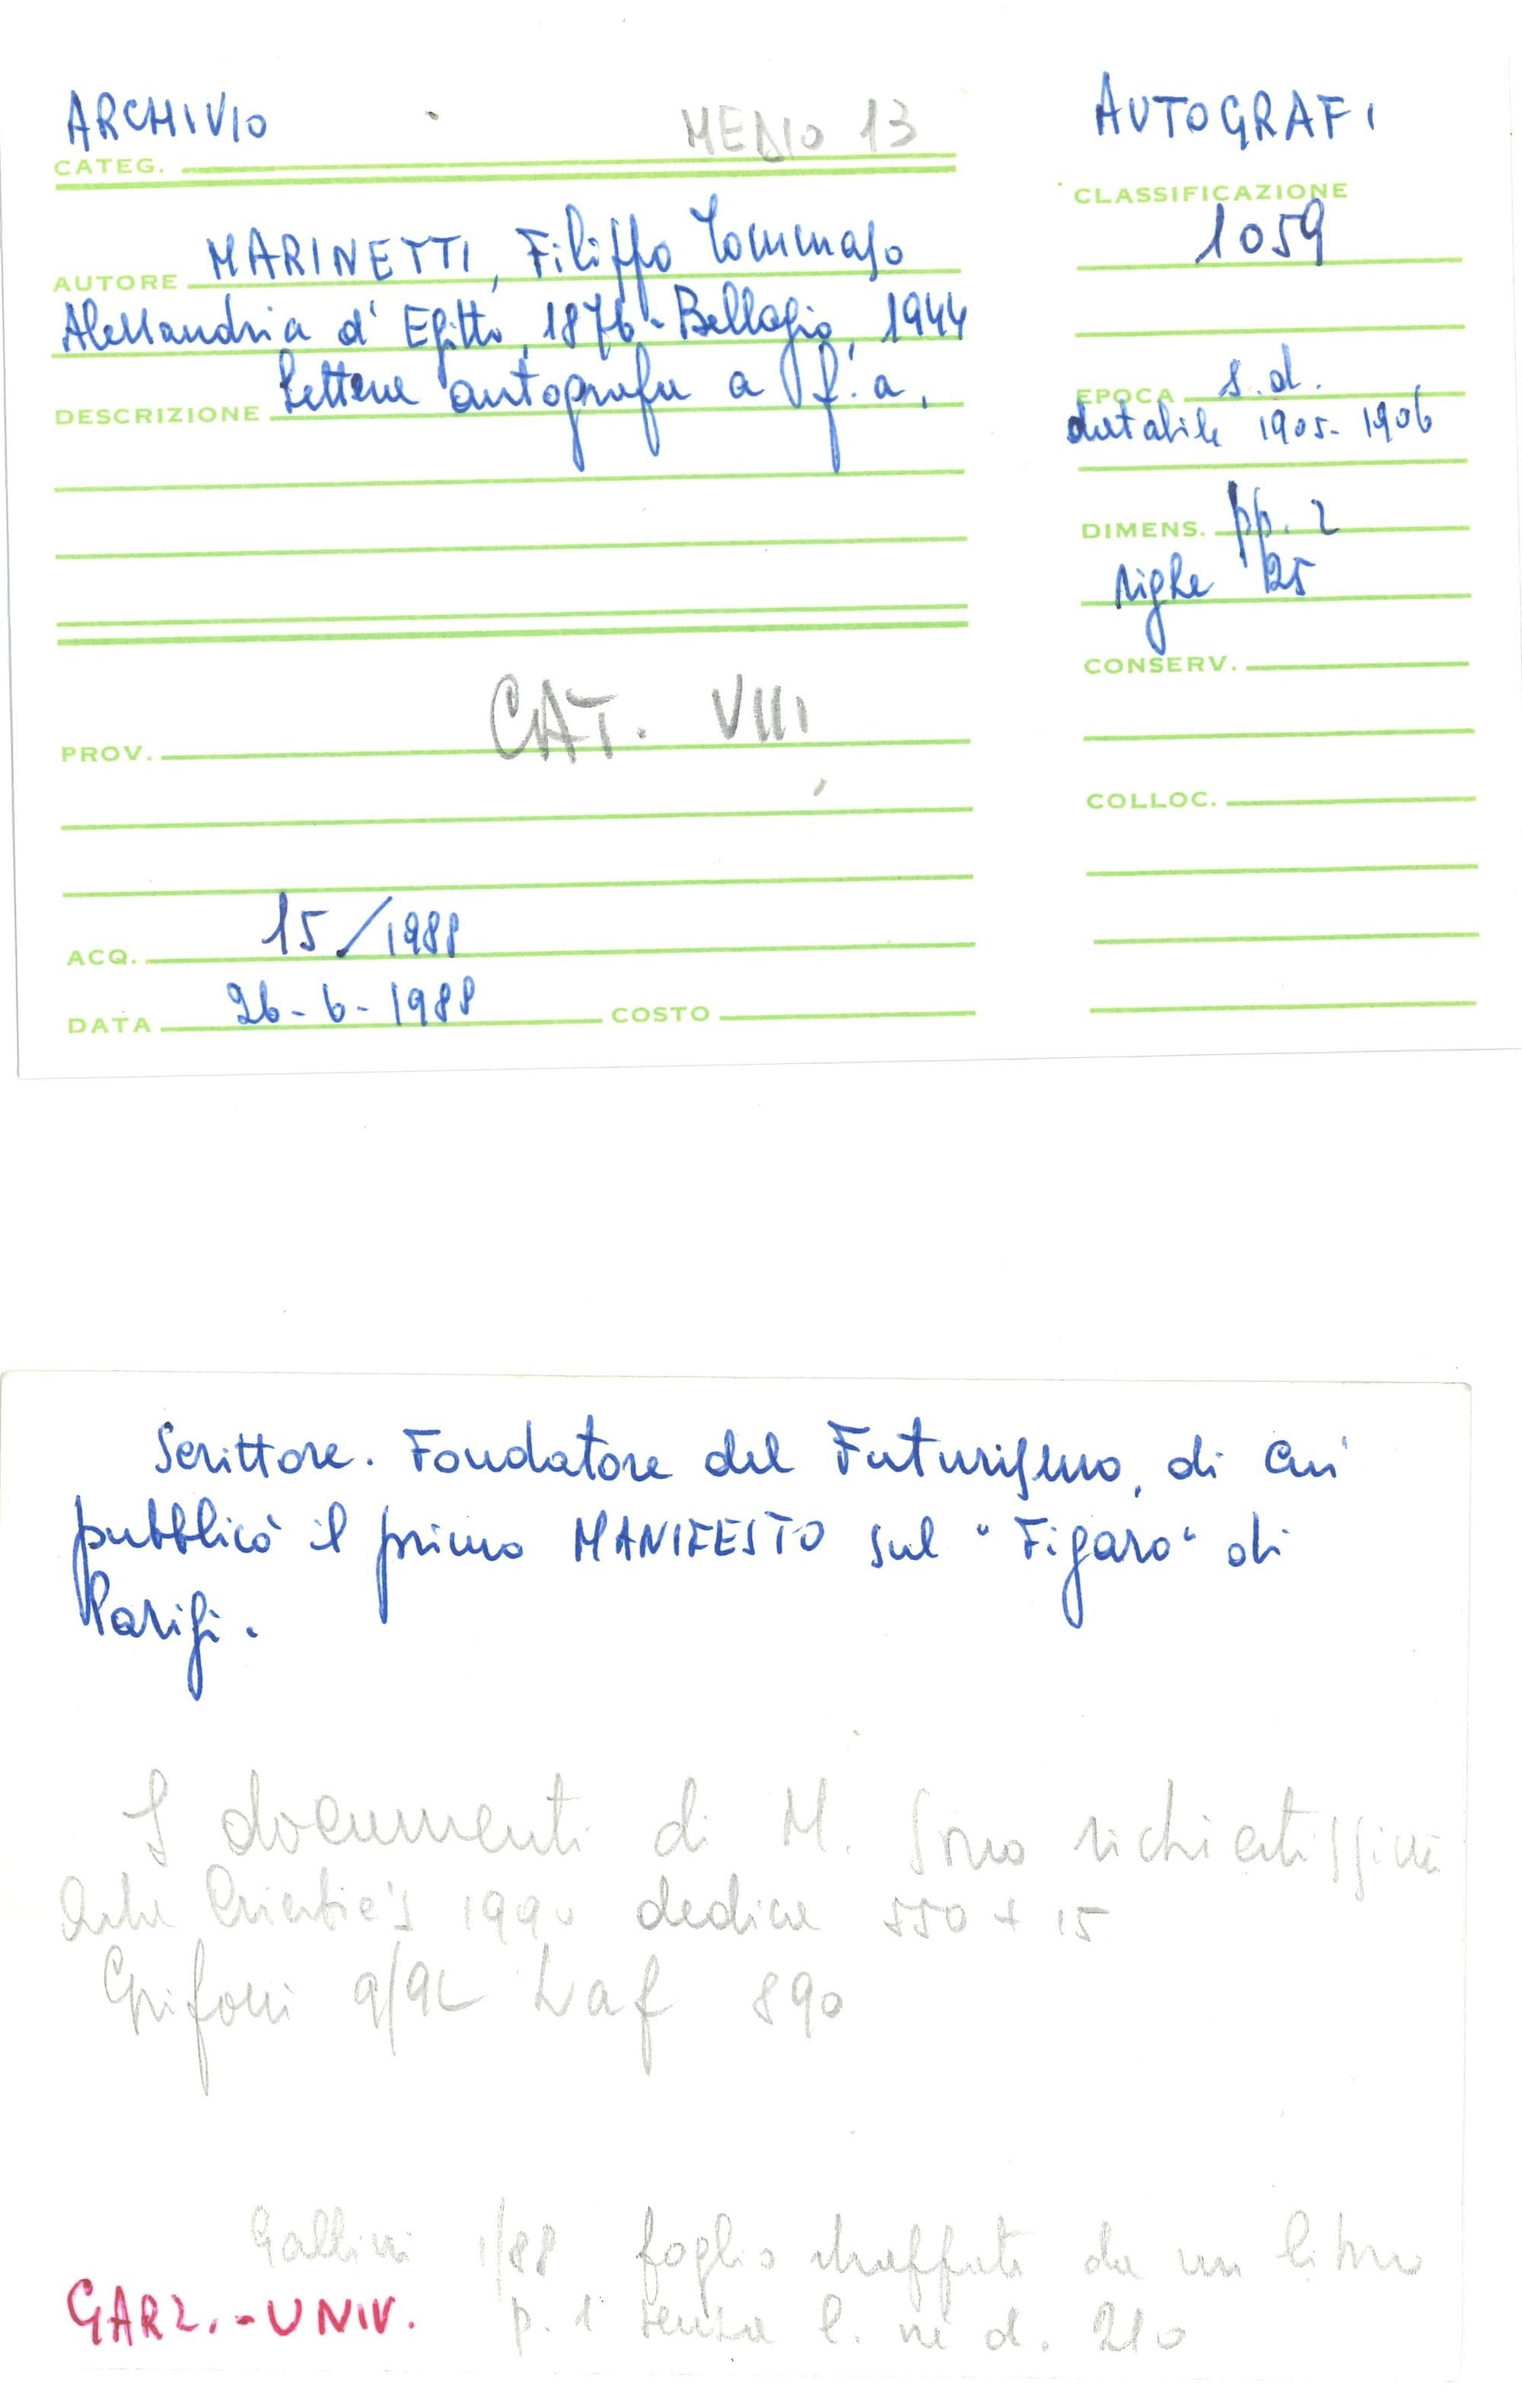 ARCHIVIO
CATEG.
MEDIO 13
AUTORE MARINETTI, Filippo Tommaso
Alessandria d'Egitto, 1876 - Bellagio, 1944
DESCRIZIONE Lettera autografa a f.a.
PROV.
CAT. VIII
ACQ. 15/1988
DATA 26-6-1988 COSTO
AUTOGRAFI
CLASSIFICAZIONE
1059
EPOCA s.d.
databile 1905-1906
DIMENS. pp. 2
righe 25
CONSERV.
COLLOC.
Scrittore. Fondatore del Futurismo, di cui
pubblicò il primo MANIFESTO sul "Figaro" di
Parigi.
I documenti di M. sono richiestissimi
Christie's 1990 dedica 550 + 15
Grifoni 9/92 Laf 890
Gallini 1/88 foglio da un libro
p. 1 senza l. né d. 210
GARZ.-UNIV.